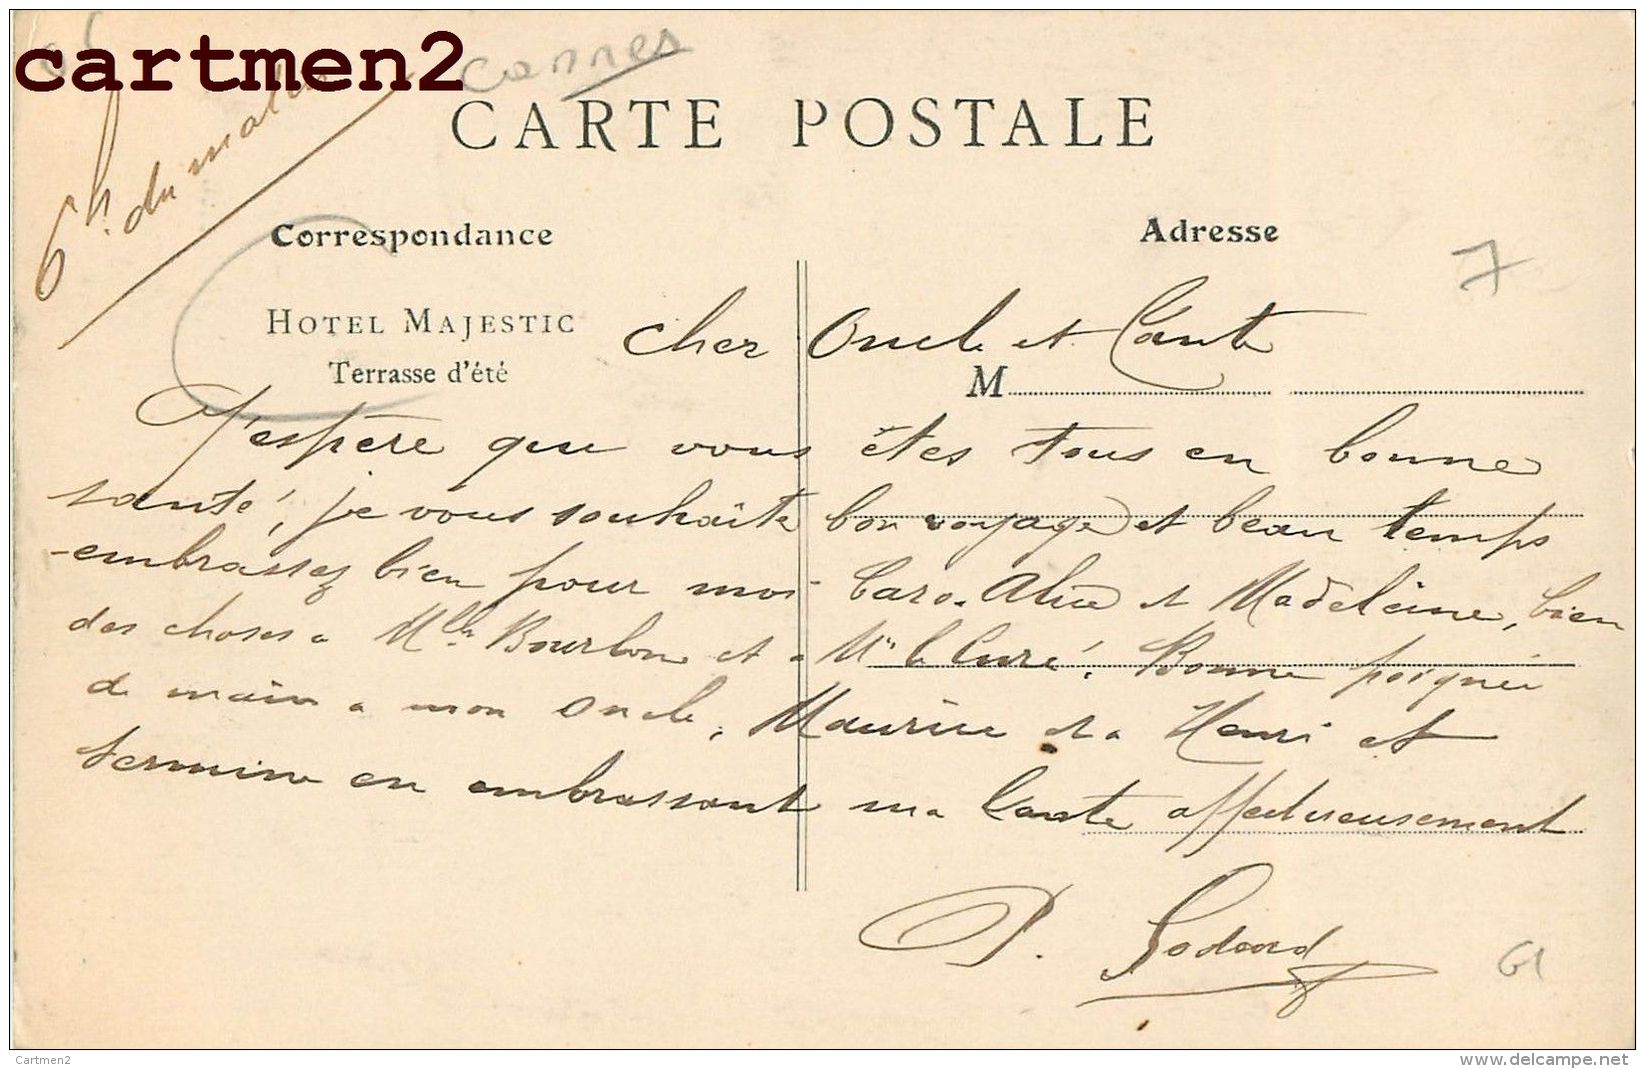 cartmen2
Cannes
CARTE POSTALE
6h. du matin
Correspondance
Adresse
7
HOTEL MAJESTIC
Terrasse d'été
M
Cher Oncle et Tante
J'espère que vous êtes tous en bonne
santé, je vous souhaite bon voyage et beau temps
embrassez bien pour moi Caro. Alice et Madeleine, bien
des choses a Mlle Bourbon et a Mr le Curé. Bonne poignée
de main a mon oncle, Maurice et a Henri et
termine en embrassant ma tante affectueusement
P. Godard
Cartmen2
www.delcampe.net